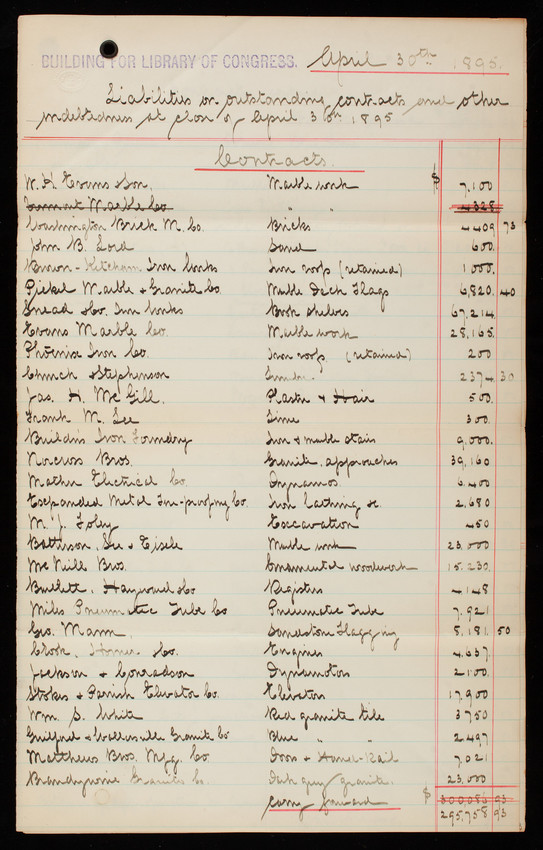 BUILDING FOR LIBRARY OF CONGRESS. April 30th 1895.
Liabilities on outstanding contracts and other
indebtedness at close of April 30th 1895
Contracts.
W. H. Evans & Son. Marble work $ 7,100
Vermont Marble Co " " 4328
Washington Brick M. Co. Bricks 4409 73
John B. Lord Sand 600.
Brown-Ketcham Iron Works Iron roofs (retained) 1000.
Pickel Marble & Granite Co. Marble Deck Flags 6,820. 40
Snead & Co. Iron Works Book shelves 67,214
Evans Marble Co. Marble work 28,165.
Phoenix Iron Co. Iron roofs (retained) 200
Church & Stephenson 2374 30
Jas. H. McGill. Plaster & Hair 500.
Frank M. Lee Lime 300.
Builders Iron Foundry Iron & marble stairs 9,000.
Norcross Bros. Granite, approaches 39,160
Mather Electrical Co. Dynamos. 6,400
Expanded Metal Fire-proofing Co. Iron Lathing &c. 2,680
M. J. Foley Excavation 450
Batterson, See & Eisele Marble work 23,000
McNeill Bros. Ornamental woodwork 15,230.
Bullett, Hayward & Co Registers 4148
Miles Pneumatic Tube Co Pneumatic Tube 7,921
Geo. Mann. Sandstone Flagging 5,181. 50
Crook, Horner & Co. Engines 4,637
Jackson & Conradson Dynamotors 2100.
Stokes & Parish Elevator Co. Elevators 17,900
Wm. S. White Red granite tile 3750
Guilford & Waltersville Granite Co Blue " " 2,497
Matthews Bros. Mfg. Co. Doors & Hand-Rail 7,021
Brandywine Granite Co. Dark grey granite. 23,000
carry forward $ 300,086 93
295,758 93